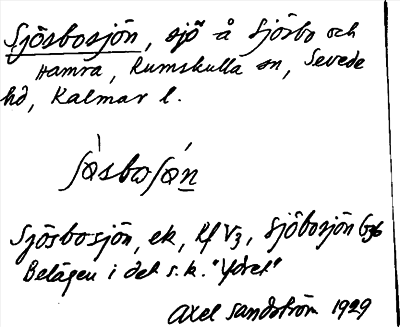 Sjösbosjön, sjö å Sjösbo och
Hamra, Rumskulla sn, Sevede
hd, Kalmar l.
ʃøsboʃøn
Sjösbosjön, ek, Kf V3, Sjöbosjön G36
Belägen i det s.k. "Ydrel"
Axel Sandström 1929